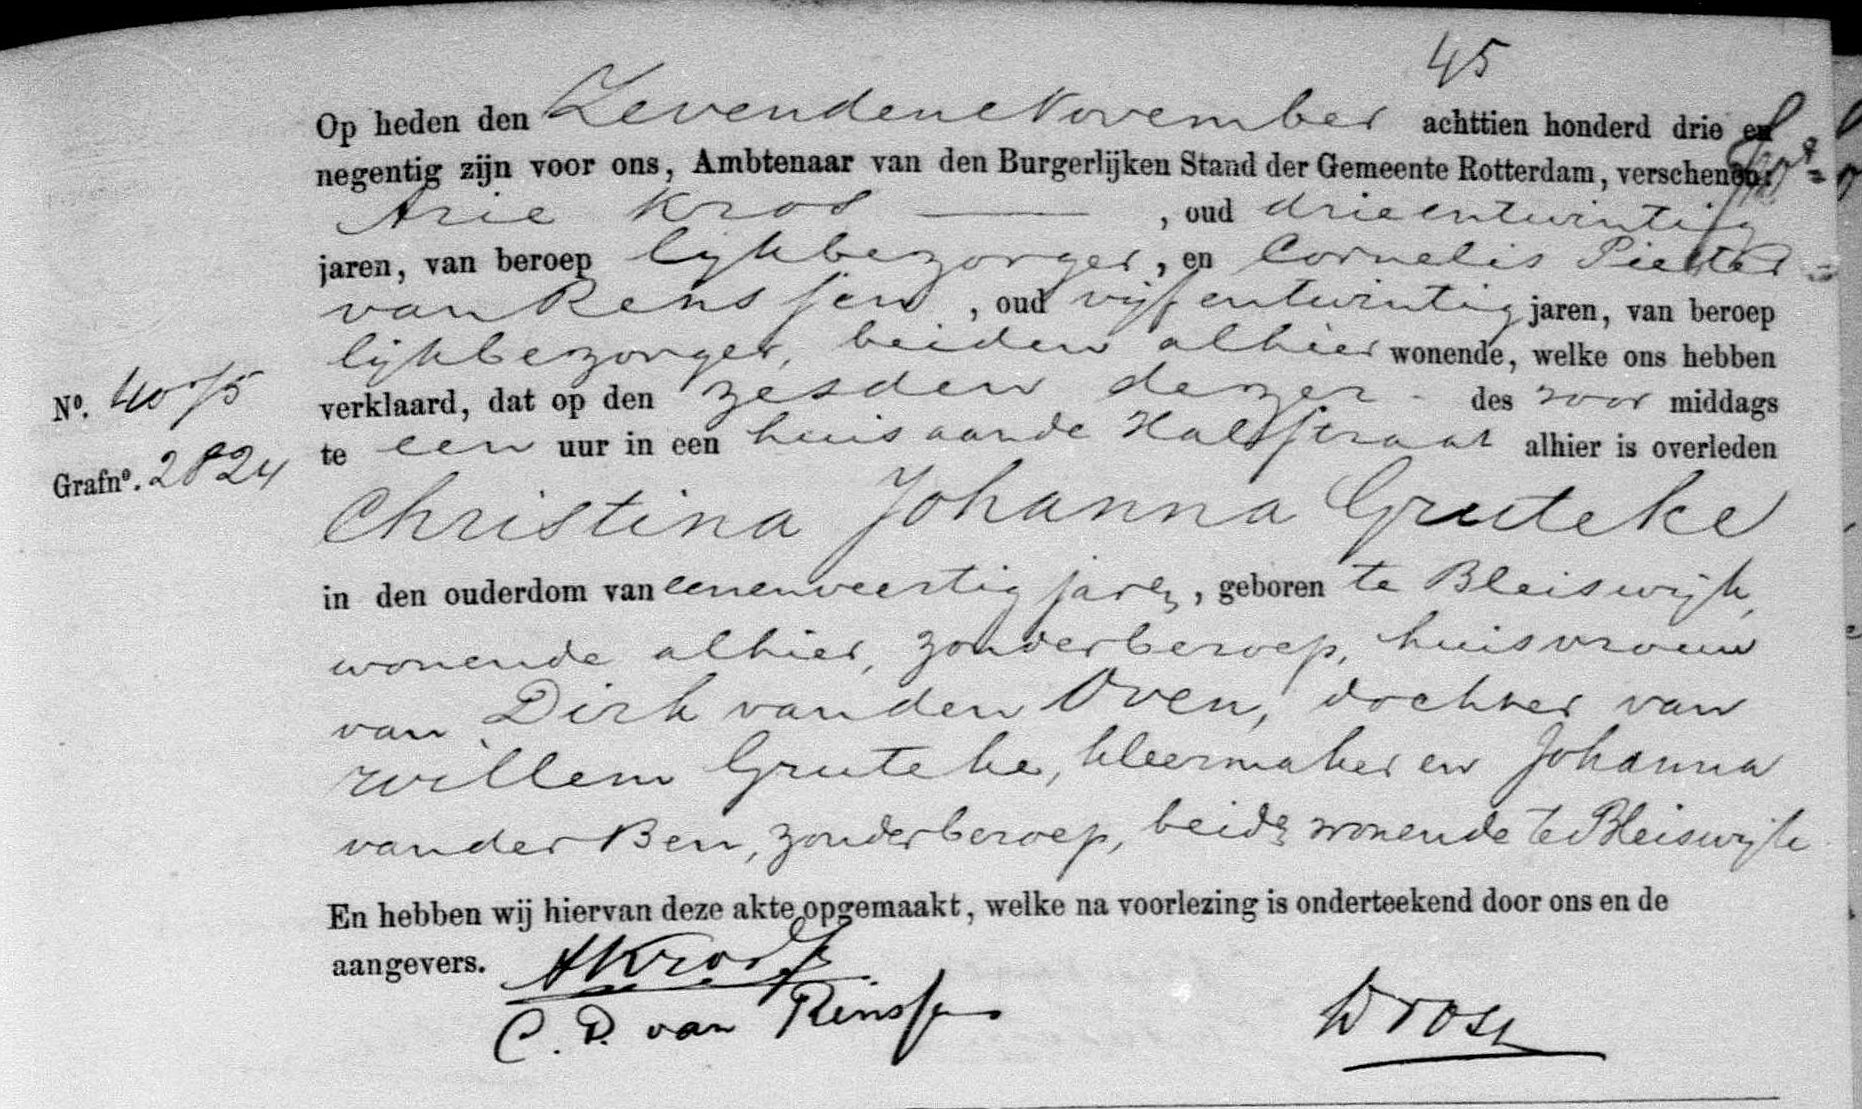 45
Op heden den Zevenden November achttien honderd drie en
negentig zijn voor ons, Ambtenaar van den Burgerlijken Stand der Gemeente Rotterdam, verschenen:
Arie Kros , oud drieentwintig
jaren, van beroep lijkbezorger, en Cornelis Pieter
van Renssen, oud vijfentwintig jaren, van beroep
lijkbezorger, beiden alhier wonende, welke ons hebben
No. 4075 verklaard, dat op den zesden dezer des voor middags
te een uur in een huis aan de straat alhier is overleden
Grafno. 2824
Christina Johanna Gruteke
in den ouderdom van eenenveertig jaren, geboren te Bleiswijk,
wonende alhier, zonder beroep, huisvrouw
van Dirk van den Oven, dochter van
Willem Gruteke, kleermaker en Johanna
van der Ben, zonder beroep, beiden wonende te Bleiswijk
En hebben wij hiervan deze akte opgemaakt, welke na voorlezing is onderteekend door ons en de
aangevers. AKros
C. P. van Rensse